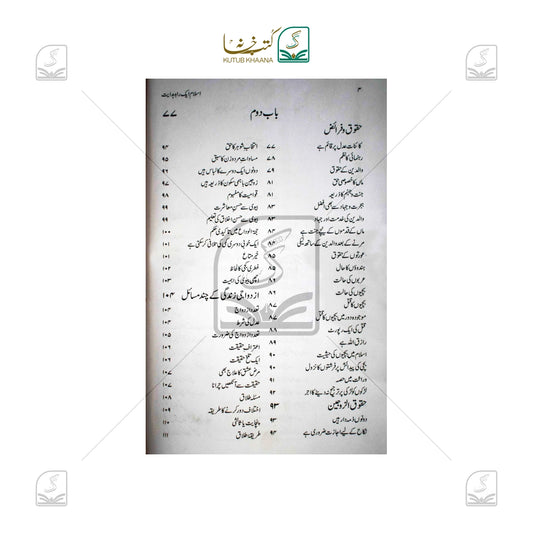 کتب خانہ
KUTUB KHAANA
۴
اسلام ایک راہ ہدایت
باب دوم
۷۷
حقوق و فرائض
کائنات عدل پر قائم ہے ۷۷
رہنمائی کا نظم ۷۸
والدین کے حقوق ۸۰
ماں کا خصوصی حق ۸۱
جنت و جہنم کا ذریعہ ۸۱
ہجرت و جہاد سے بھی افضل ۸۳
والدین کی خدمت اور جہاد
ماں کے قدموں کے نیچے جنت ہے
مرنے کے بعد والدین کے ساتھ نیکی
عورتوں کے حقوق
ہندوؤں کا حال
عربوں کی حالت
بچیوں کی حالت
بچیوں کا قتل ۸۷
موجودہ دور میں بچیوں کا قتل ۸۷
قتل کی ایک رپورٹ ۸۸
رازق اللہ ہے ۸۹
اسلام میں بچیوں کی حیثیت ۹۰
بچی کی پیدائش پر فرشتوں کا نزول
وراثت میں حصہ
لڑکوں کو لڑکی پر ترجیح نہ دینے کا اجر ۹۲
حقوق الزوجین ۹۳
دونوں ذمہ دار ہیں ۹۳
نکاح کے لیے اجازت ضروری ہے ۹۴
انتخاب شوہر کا حق ۹۴
مساوات مرد و زن کا سبق ۹۵
دونوں ایک دوسرے کا لباس ہیں ۹۶
زوجین باہمی سکون کا ذریعہ ہیں ۹۷
قوامیت کا مفہوم ۹۷
بیوی سے حسن معاشرت ۹۹
بیوی سے حسن اخلاق کی تعلیم ۹۹
حجۃ الوداع میں تاکیدی حکم ۱۰۰
ایک خوبی دوسری کمی کی تلافی کر سکتی ہے ۱۰۱
خیر متاع ۱۰۱
فطری کمی کا لحاظ ۱۰۲
اچھی بیوی کی اہمیت ۱۰۳
ازدواجی زندگی کے چند مسائل ۱۰۴
تعدد ازدواج ۱۰۴
عدل کی شرط
تعدد ازدواج کی ضرورت ۱۰۵
اعتراف حقیقت
ایک تلخ حقیقت
مرض عشق کا علاج بھی ۱۰۷
حقیقت سے آنکھیں چرانا ۱۰۷
مسئلہ طلاق ۱۰۸
اختلاف دور کرنے کا طریقہ ۱۰۹
پنچایت یا ثالثی ۱۱۰
طریقۂ طلاق ۱۱۱